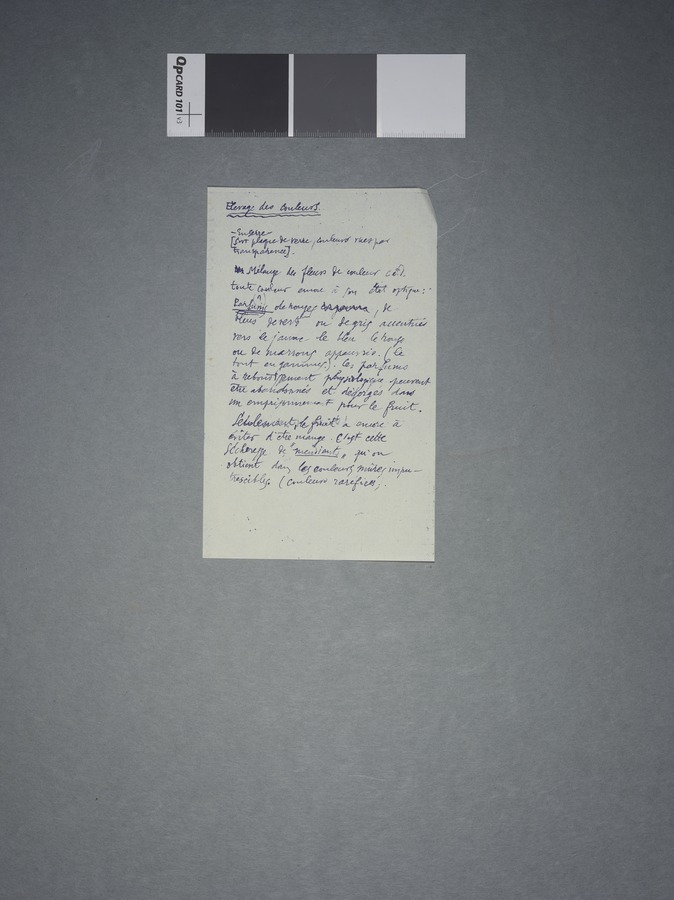 QPCARD 101 v3
Elevage des Couleurs.
- En serre -
[Sur plaque de verre, couleurs vues par
transparence].
Mélange des fleurs de couleur c.à.d.
toute couleur encore à son état optique :
Parfums de rouges, de
bleus de verts ou de gris accentués
vers le jaune le bleu le rouge
ou de marrons appauvris. (le
tout en gammes). les parfums
à rebours physiologique peuvent
être abandonnés et dégorgés dans
un emprisonnement pour le fruit.
Seulement, le fruit a encore à
éviter d'être mangé. C'est cette
Sècheresse de "mendiants" qu'on
obtient dans les couleurs mûres impu-
trescibles. (couleurs raréfiées).